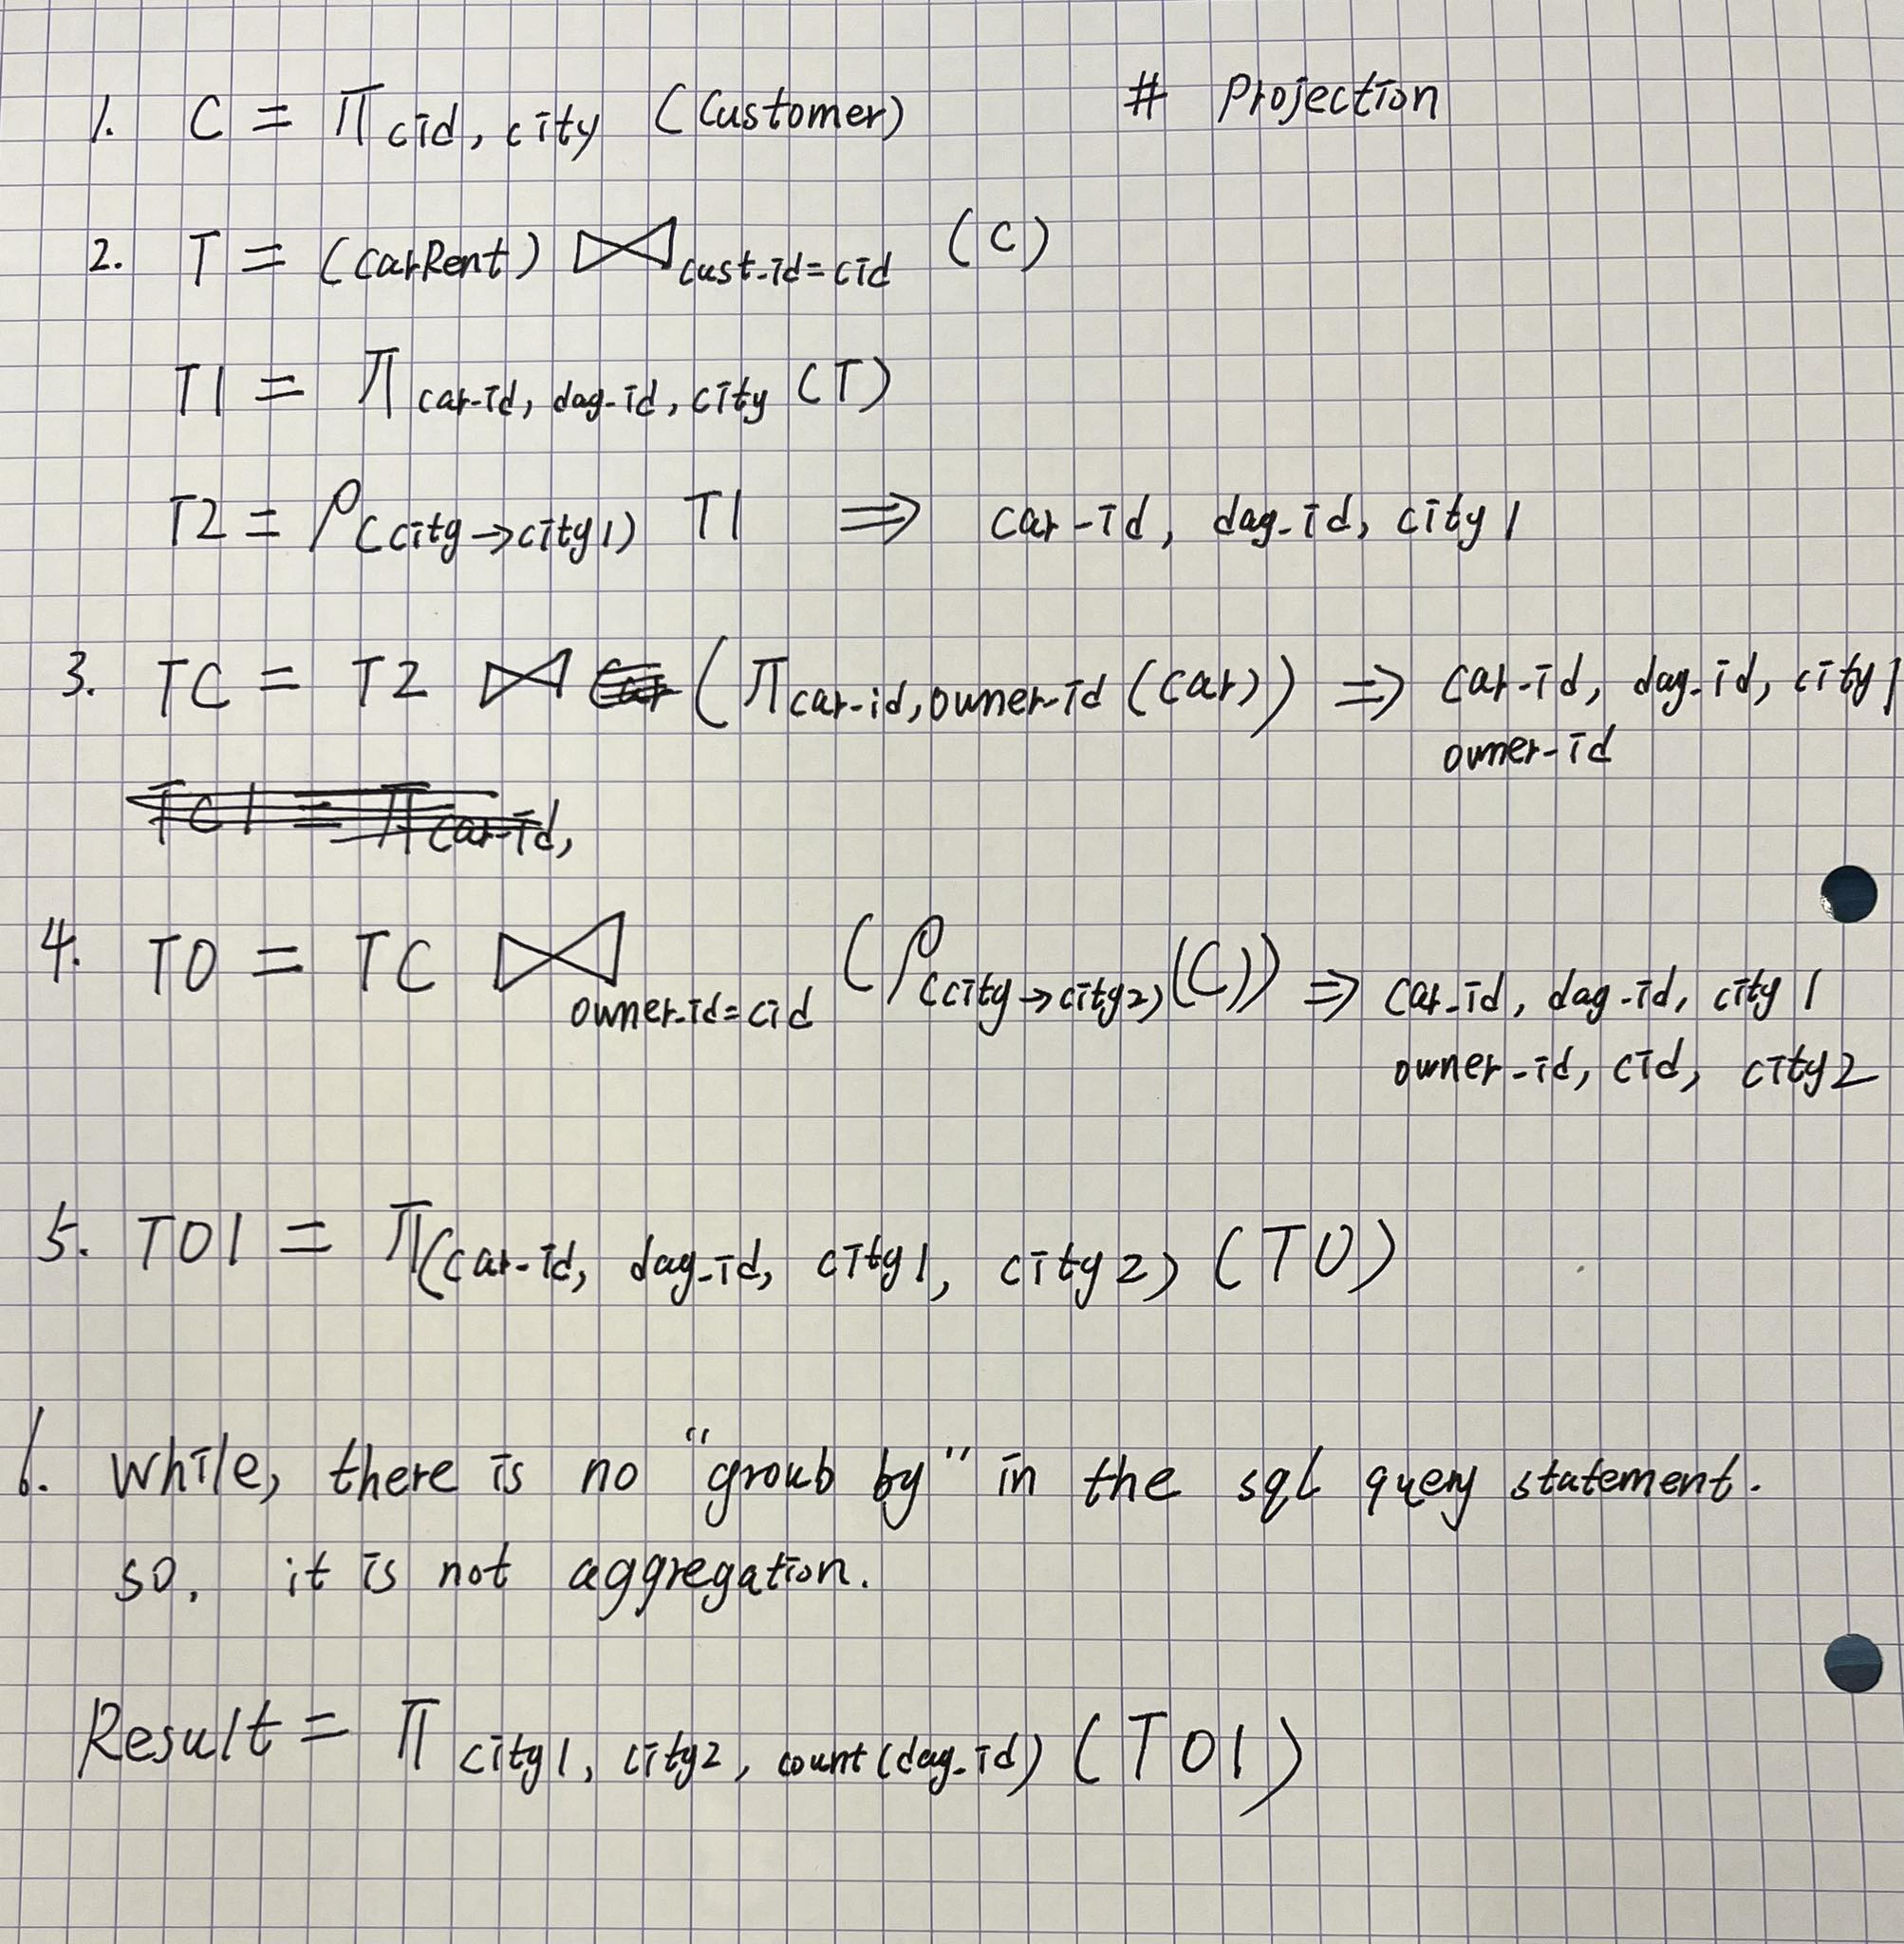 1. C = π cid, city (Customer) # Projection
2. T = (CarRent) ⋈ cust-id=cid (C)
T1 = π car-id, dag-id, city (T)
T2 = ρ(city→city1) T1 ⇒ car-id, dag-id, city1
3. TC = T2 ⋈ (π car-id, owner-id (Car)) ⇒ car-id, dag-id, city1
owner-id
TC1 = π car-id,
4. TO = TC ⋈ owner-id=cid (ρ(city→city2)(C)) ⇒ car-id, dag-id, city1
owner-id, cid, city2
5. TO1 = π(car-id, dag-id, city1, city2) (TO)
6. While, there is no "groub by" in the sql query statement.
so, it is not aggregation.
Result = π city1, city2, count(dag-id) (TO1)